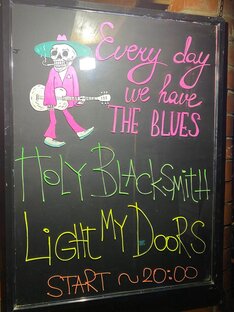 Every day
we have
THE BLUES
HOLY BLACKSMITH
LIGHT MY DOORS
START ~ 20:00